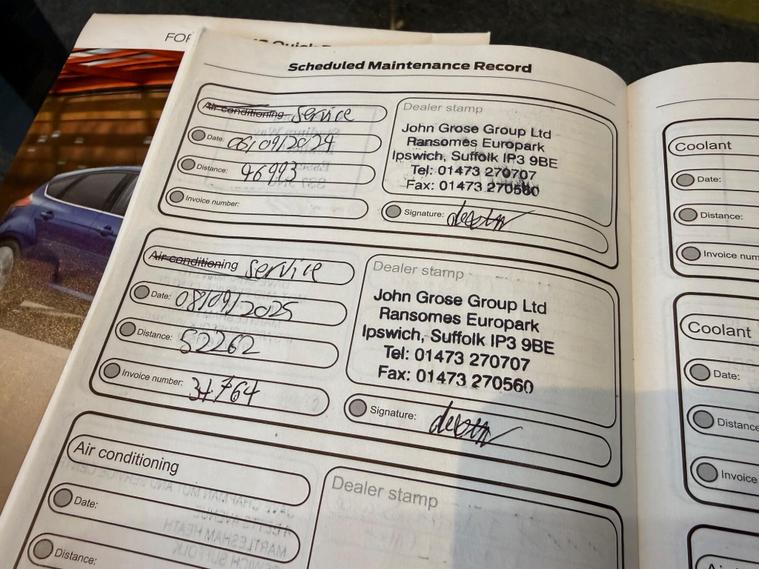 Scheduled Maintenance Record
Air conditioning service
Date: 06/09/2024
Distance: 46993
Invoice number:
Dealer stamp
John Grose Group Ltd
Ransomes Europark
Ipswich, Suffolk IP3 9BE
Tel: 01473 270707
Fax: 01473 270560
Signature:
Air conditioning service
Date: 08/09/2025
Distance: 52262
Invoice number: 37764
Dealer stamp
John Grose Group Ltd
Ransomes Europark
Ipswich, Suffolk IP3 9BE
Tel: 01473 270707
Fax: 01473 270560
Signature:
Air conditioning
Date:
Distance:
Dealer stamp
Coolant
Date:
Distance:
Invoice num
Coolant
Date:
Distance
Invoice